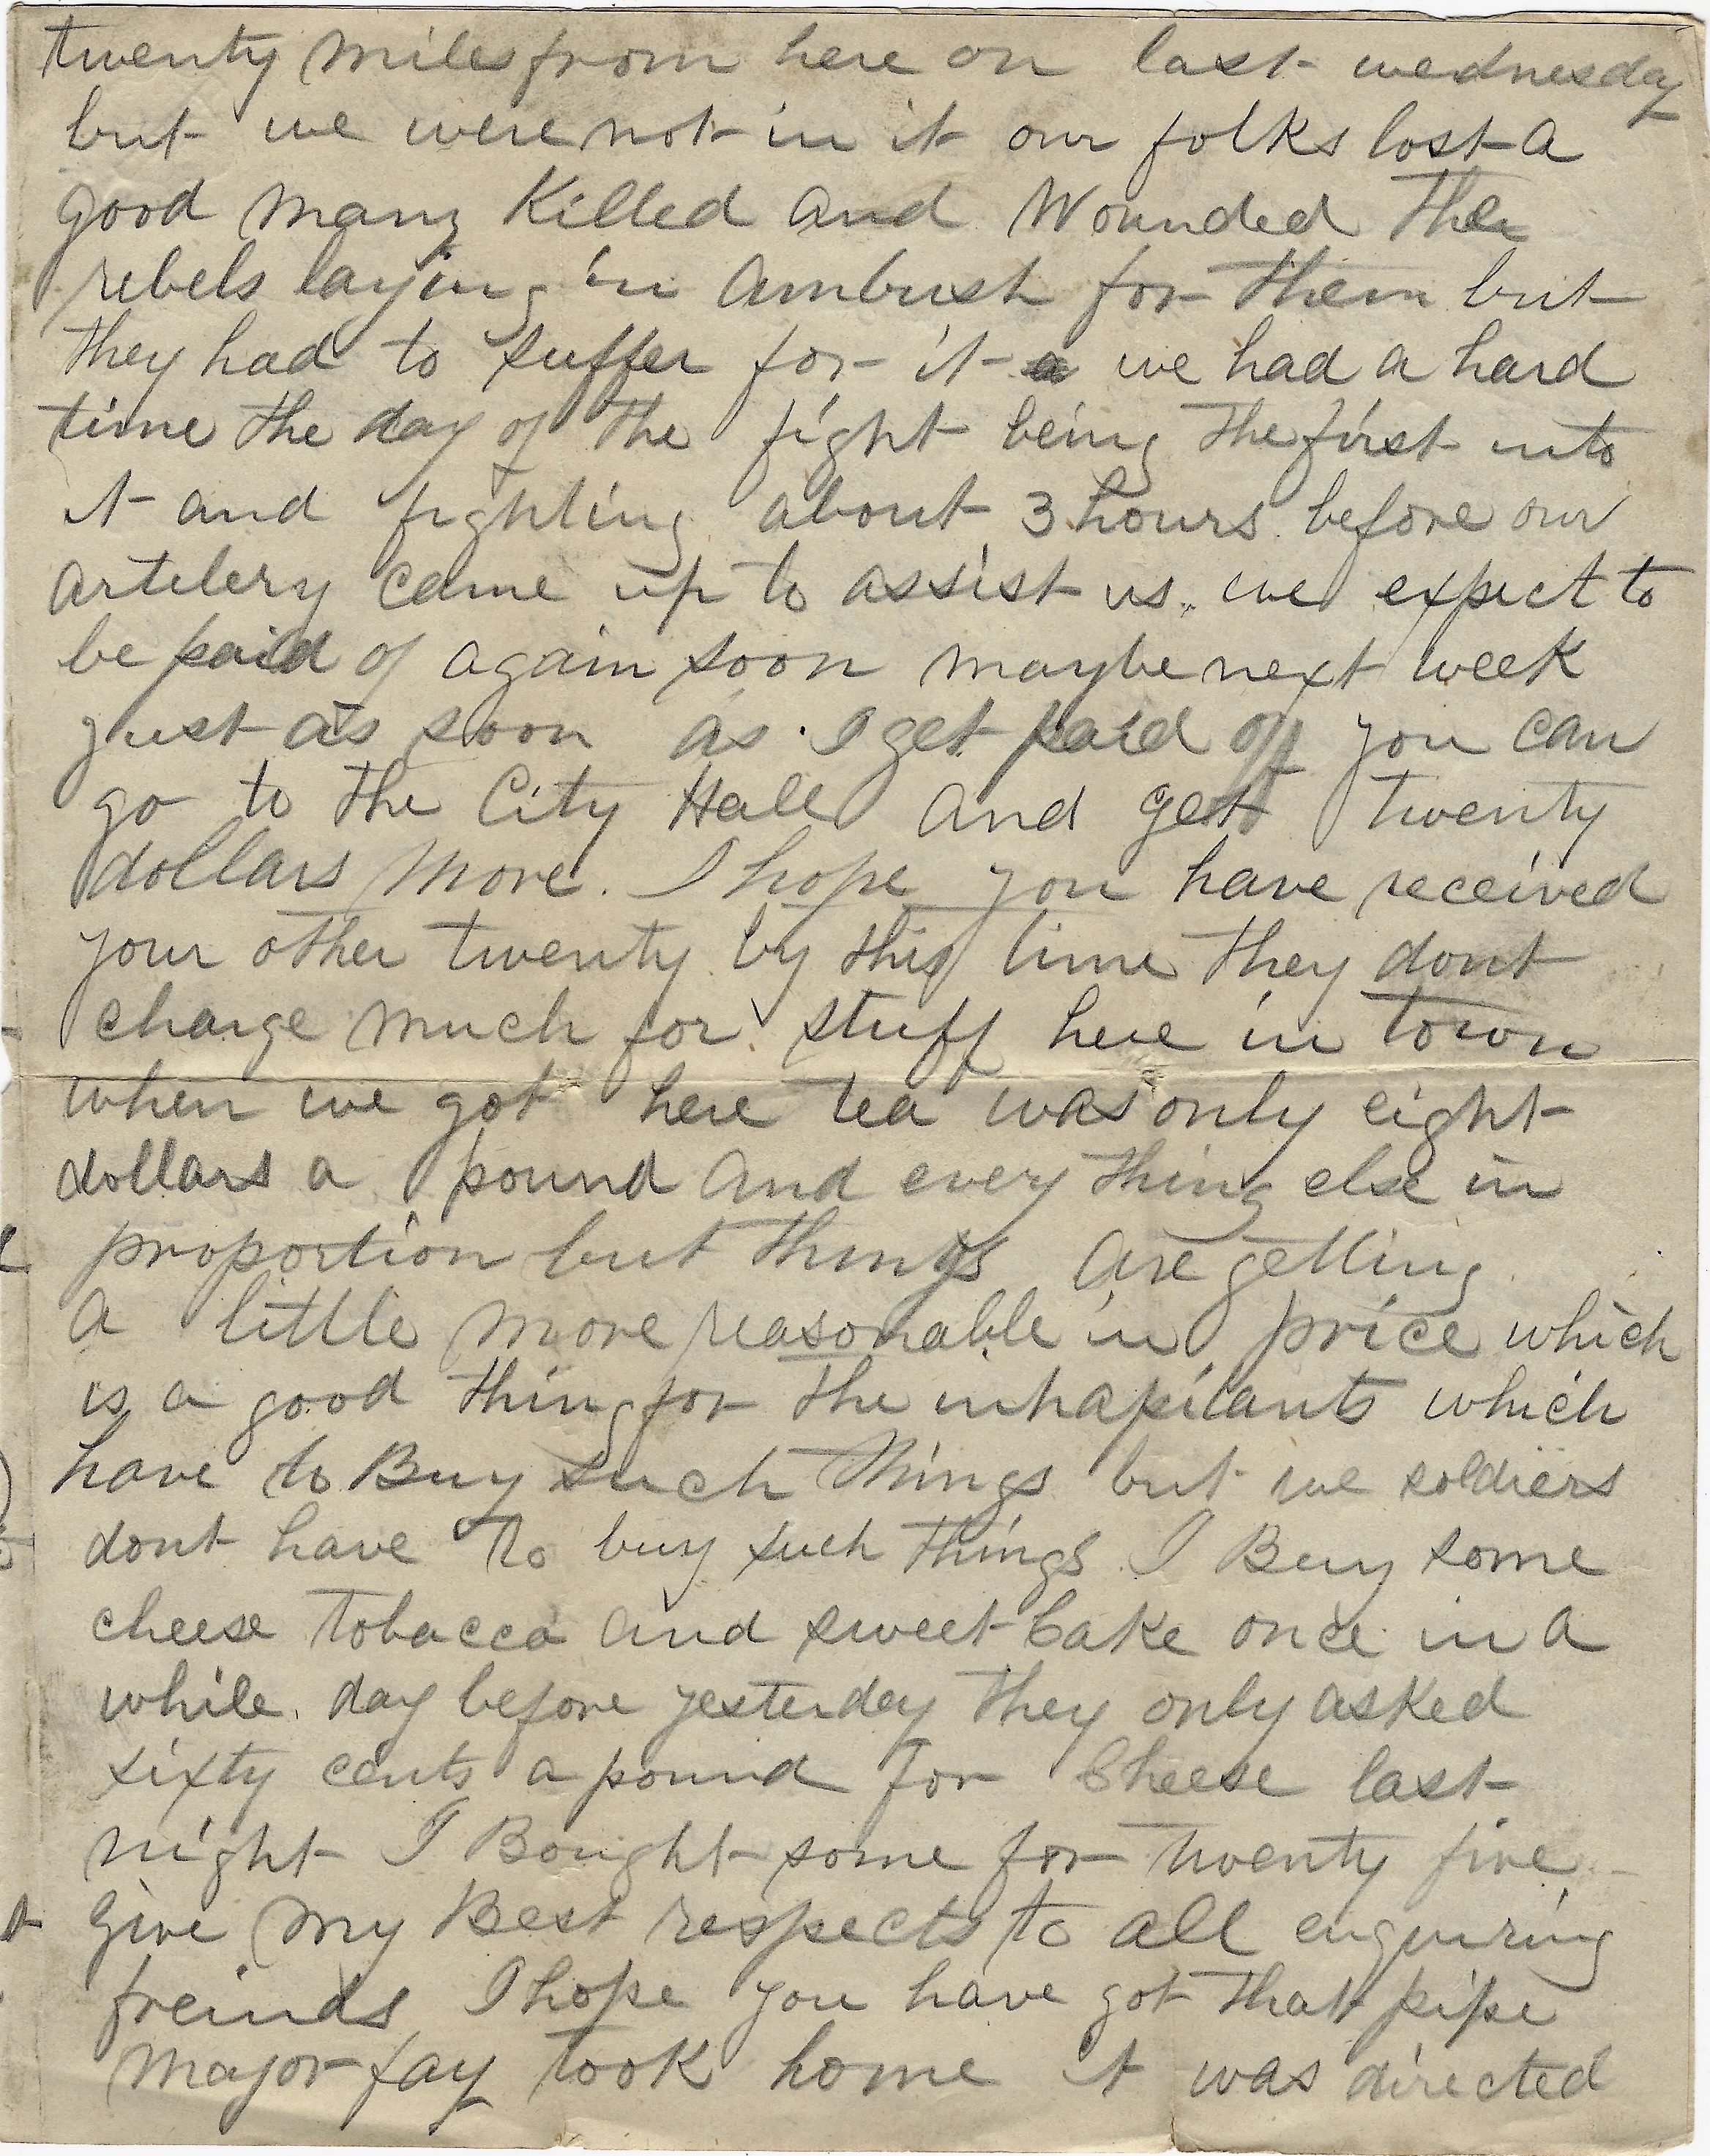 twenty miles from here on last wednesday
but we were not in it our folks lost a
good many Killed and Wounded the
rebels laying in Ambush for them but
they had to suffer for it we had a hard
time the day of the fight being the first into
it and fighting about 3 hours before our
artilery came up to assist us. we expect to
be paid of again soon maybe next week
just as soon as I get paid off you can
go to the City Hall and get twenty
dollars more. I hope you have received
your other twenty by this time they dont
charge much for stuff here in town
when we got here tea was only eight
dollars a pound and every thing else in
proportion but things are getting
a little more reasonable in price which
is a good thing for the inhapitants which
have to Buy such things but we soldiers
dont have to buy such things I Buy some
cheese tobacco and sweet Cake once in a
while. day before yesterday they only asked
sixty cents a pound for Cheese last
night I Bought some for twenty five
Give my Best respects to all enquiring
freinds I hope you have got that pipe
Major fay took home it was directed